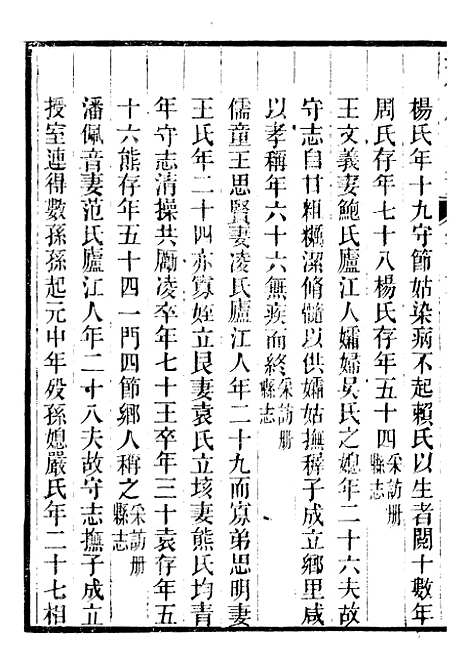 楊氏年十九守節姑染病不起賴氏以生者閱十數年
周氏存年七十八楊氏存年五十四采訪册縣志
王文義妻鮑氏廬江人孀婦吳氏之媳年二十六夫故
守志自甘粗糲潔脩髓以供孀姑撫穉子成立鄉里咸
以孝稱年六十六無疾而終采訪册縣志
儒童王思賢妻凌氏廬江人年二十九而寡弟思明妻
王氏年二十四亦寡姪立艮妻袁氏立垓妻熊氏均青
年守志清操共勵凌卒年七十王卒年三十袁存年五
十六熊存年五十四一門四節鄉人稱之采訪册縣志
潘佩音妻范氏廬江人年二十八夫故守志撫子成立
授室連得數孫孫起元中年歿孫媳嚴氏年二十七相